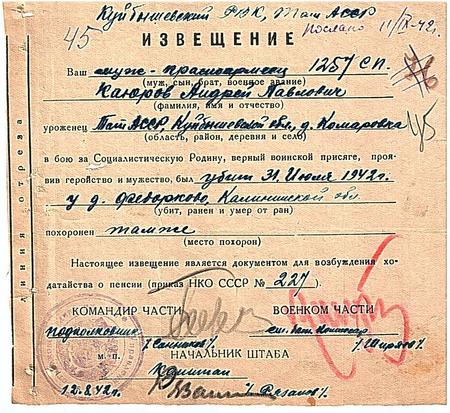 Куйбышевский РВК, Тат АССР
послано 11/IX-42г.
45
ИЗВЕЩЕНИЕ
Ваш муж - красноармеец 1257 СП.
(муж, сын, брат, военное звание)
Каюров Андрей Павлович
(фамилия, имя и отчество)
уроженец Тат АССР, Куйбышевской обл, д. Комаровка
(область, район, деревня и село)
45
в бою за Социалистическую Родину, верный воинской присяге, проя-
вив геройство и мужество, был убит 31 Июля 1942г.
у д. Калининской обл.
(убит, ранен и умер от ран)
похоронен там же
(место похорон)
Настоящее извещение является документом для возбуждения хо-
датайства о пенсии (приказ НКО СССР № 227)
КОМАНДИР ЧАСТИ
ВОЕНКОМ ЧАСТИ
подполковник
ст. бат. комиссар
м-п.
НАЧАЛЬНИК ШТАБА
Капитан
12.8.42г.
/Рязанов/
линия отреза